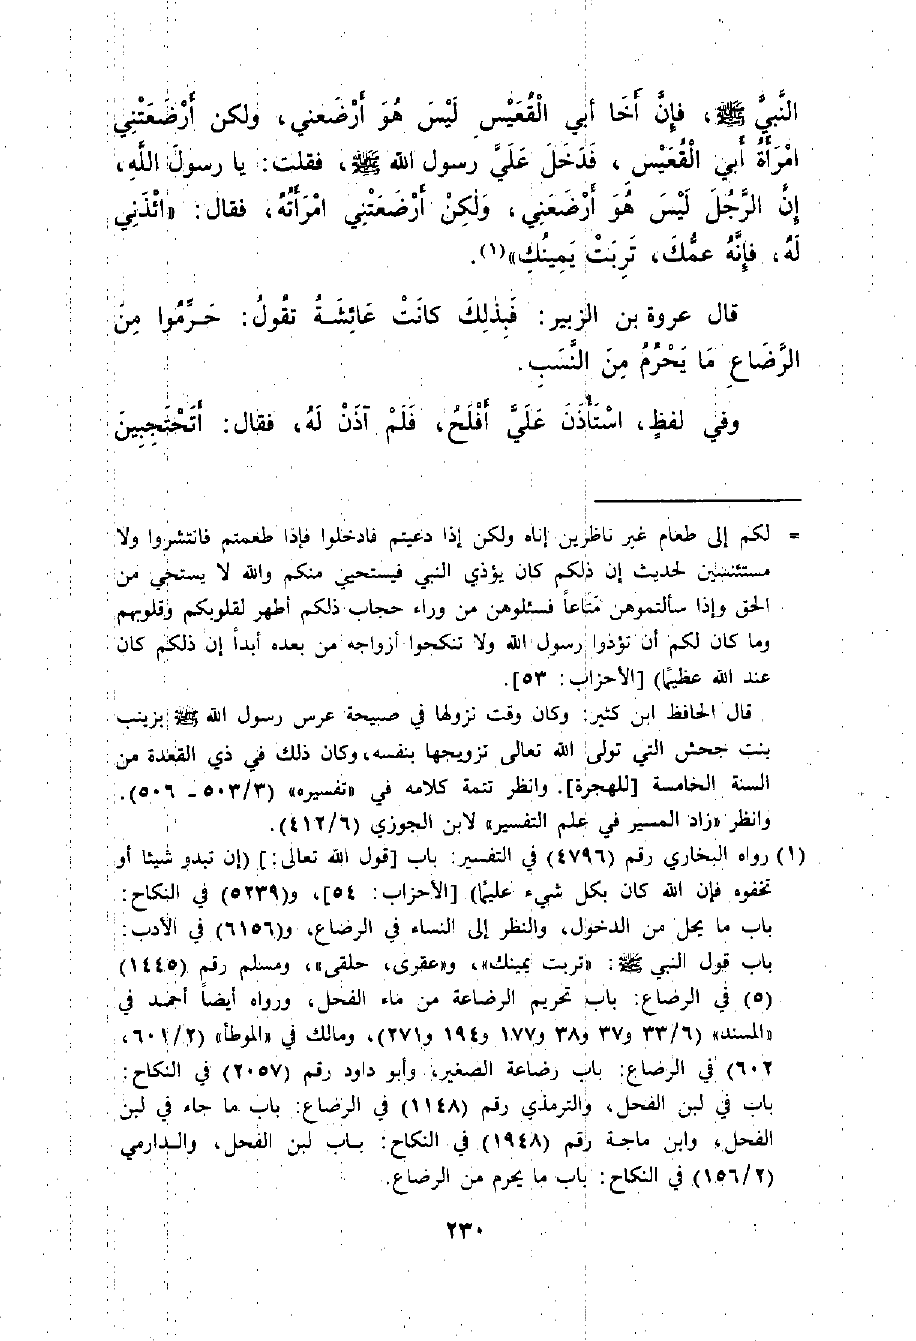 النَّبيَّ ﷺ، فإِنَّ أَخَا أبي الْقُعَيْسِ لَيْسَ هُوَ أَرْضَعني، ولكن أَرْضَعَتْنِي
امْرَأَةُ أَبي الْقُعَيْس، فَدَخَلَ عَلَيَّ رسول الله ﷺ، فقلت: يا رسولَ اللَّهِ،
إِنَّ الرَّجُلَ لَيْسَ هُوَ أَرْضَعَنِي، وَلٰكِنْ أَرْضَعَتْنِي امْرَأَتُهُ، فقال: «ائْذَنِي
لَهُ، فإِنَّهُ عمُّكَ، تَرِبَتْ يَمِينُكِ»(١).
قال عروة بن الزبير: فَبِذٰلِكَ كانَتْ عَائِشَةُ تقُولُ: حَرِّمُوا مِنَ
الرَّضَاعِ مَا يَحْرُمُ مِنَ النَّسَبِ.
وفي لفظٍ، اسْتَأْذَنَ عَلَيَّ أَفْلَحُ، فَلَمْ آذَنْ لَهُ، فقال: أَتَحْتَجِبِينَ
= لكم إلى طعام غير ناظرين إناه ولكن إذا دعيتم فادخلوا فإذا طعمتم فانتشروا ولا
مستئنسين لحديث إن ذلكم كان يؤذي النبي فيستحيي منكم والله لا يستحي من
الحق وإذا سألتموهن مَتاعاً فسئلوهن من وراء حجاب ذلكم أطهر لقلوبكم وقلوبهم
وما كان لكم أن تؤذوا رسول الله ولا تنكحوا أزواجه من بعده أبداً إن ذلكم كان
عند الله عظيمًا) [الأحزاب: ٥٣].
قال الحافظ ابن كثير: وكان وقت نزولها في صبيحة عرس رسول الله ﷺ بزينب
بنت جحش التي تولى الله تعالى تزويجها بنفسه، وكان ذلك في ذي القعدة من
السنة الخامسة [للهجرة]. وانظر تتمة كلامه في «تفسيره» (٥٠٣/٣ ـ ٥٠٦).
وانظر «زاد المسير في علم التفسير» لابن الجوزي (٤١٢/٦).
(١) رواه البخاري رقم (٤٧٩٦) في التفسير: باب [قول الله تعالى:] (إن تبدو شيئا أو
تخفوه فإن الله كان بكل شيء عليمًا) [الأحزاب: ٥٤]، و(٥٢٣٩) في النكاح:
باب ما يحل من الدخول، والنظر إلى النساء في الرضاع، و(٦١٥٦) في الأدب:
باب قول النبي ﷺ: «تربت يمينك»، و«عقرى، حلقى»، ومسلم رقم (١٤٤٥)
(٥) في الرضاع: باب تحريم الرضاعة من ماء الفحل، ورواه أيضاً أحمد في
«المسند» (٣٣/٦ و٣٧ و٣٨ و١٧٧ و١٩٤ و٢٧١)، ومالك في «الموطأ» (٦٠١/٢،
٦٠٢) في الرضاع: باب رضاعة الصغير، وأبو داود رقم (٢٠٥٧) في النكاح:
باب في لبن الفحل، والترمذي رقم (١١٤٨) في الرضاع: باب ما جاء في لبن
الفحل، وابن ماجة رقم (١٩٤٨) في النكاح: باب لبن الفحل، والدارمي
(١٥٦/٢) في النكاح: باب ما يحرم من الرضاع.
٢٣٠